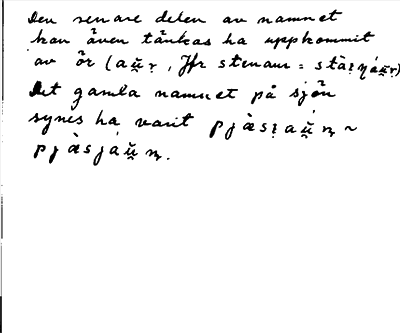 Den senare delen av namnet
kan även tänkas ha uppkommit
av ör (aŭ̬r̥, Jfr stenarn =
Det gamla namnet på sjön
synes ha varit